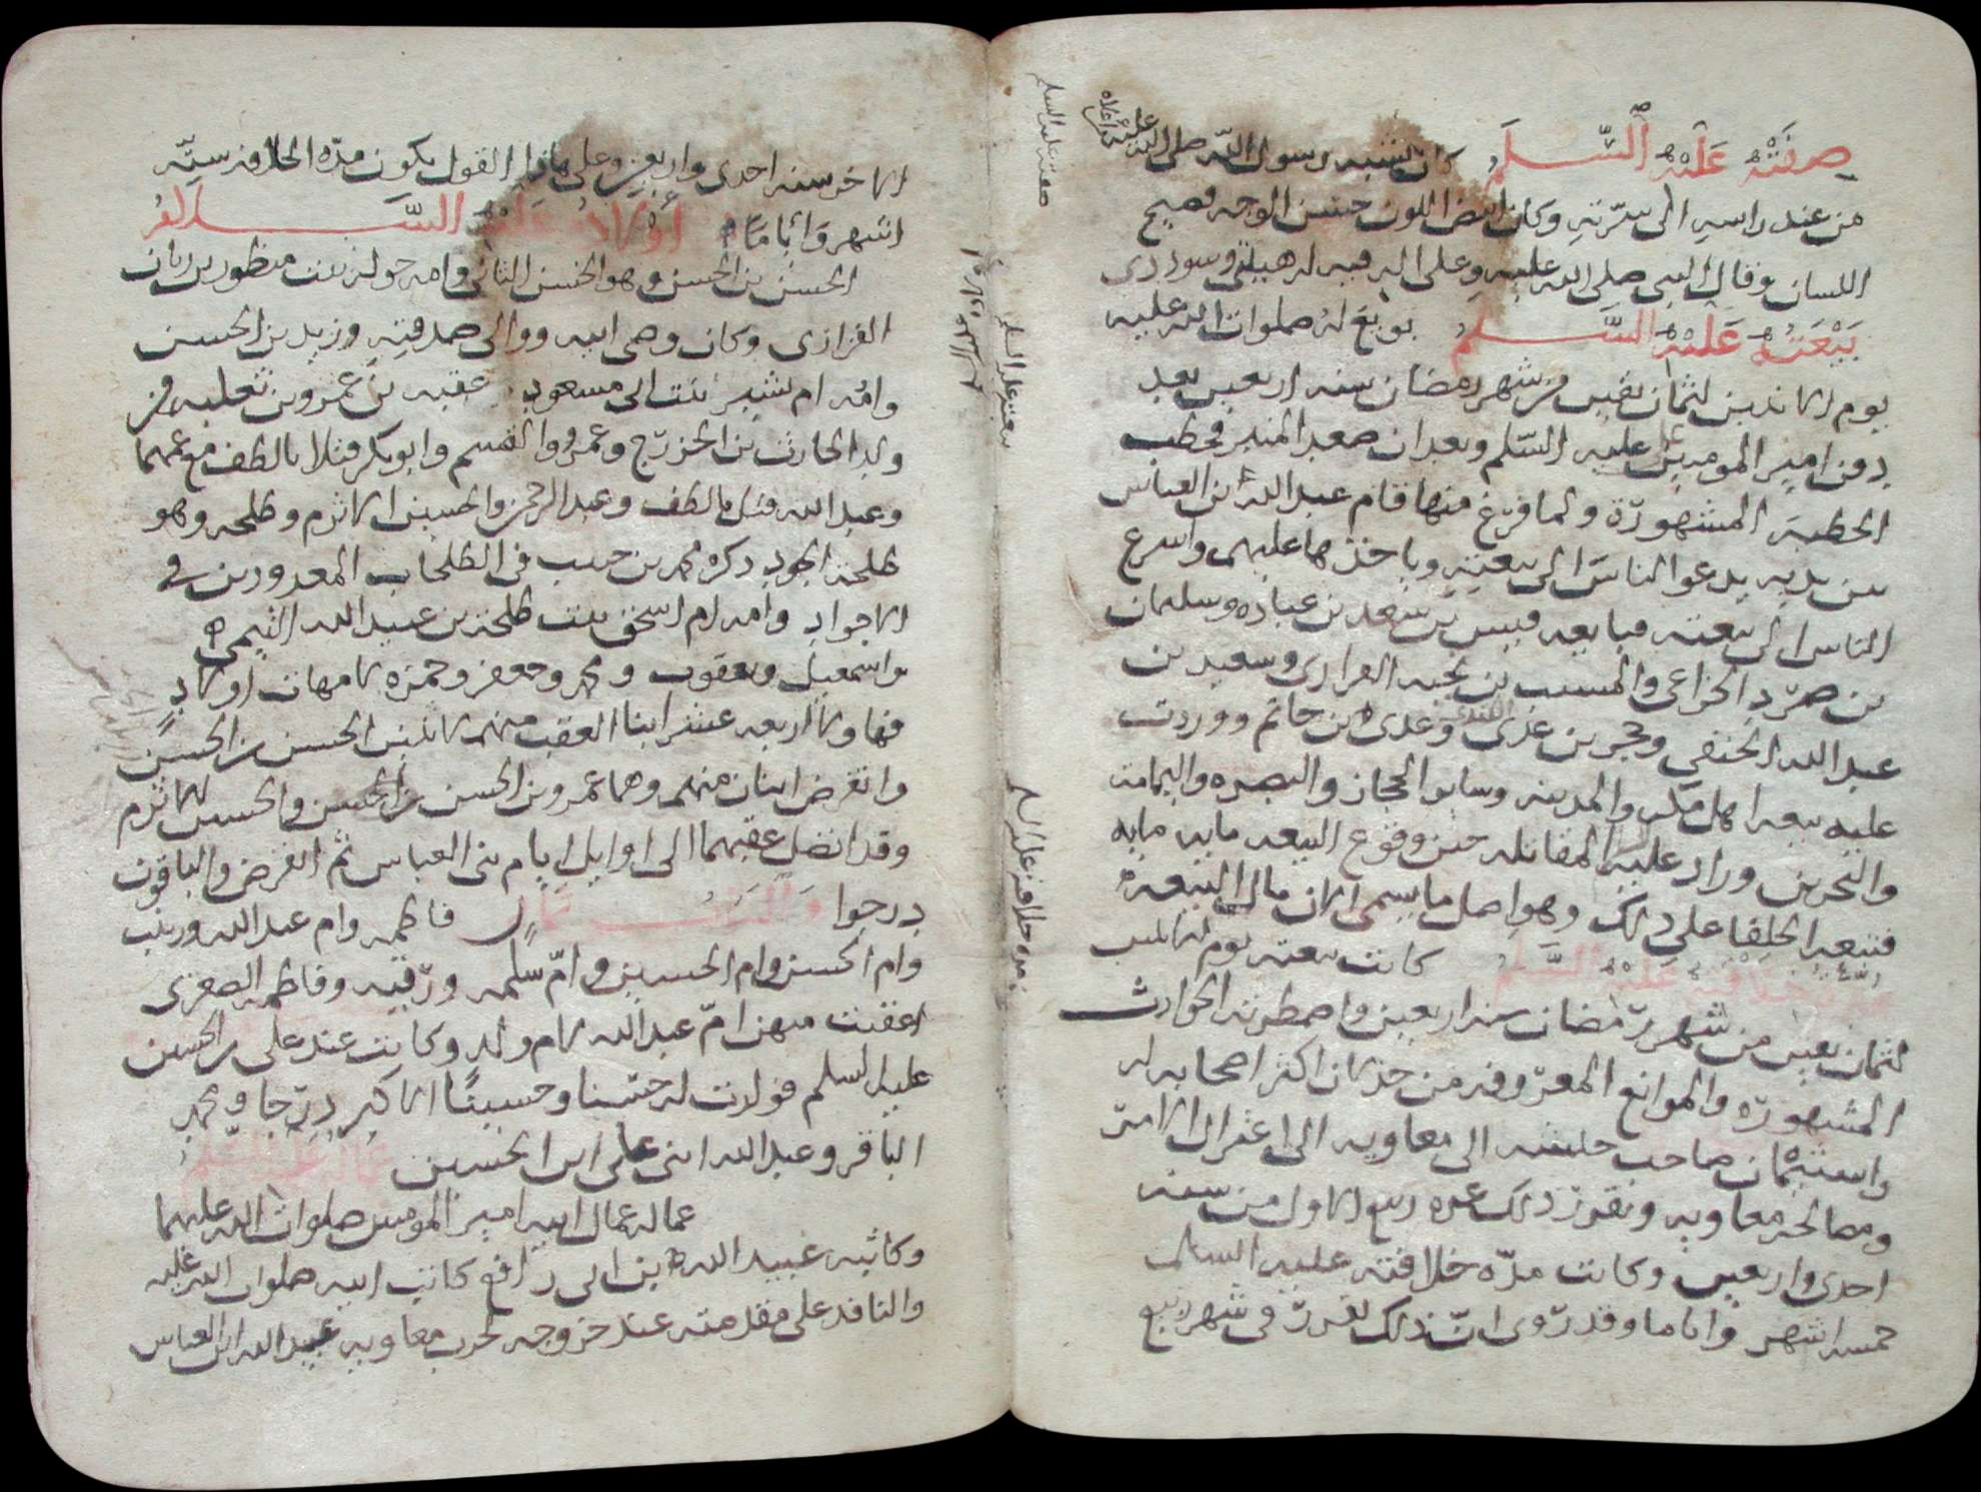 صفته عليه السلم كان يشبه رسول الله صلى الله عليه وعلى اله
من عند راسه الى سرته وكان ابيض اللون حسن الوجه فصيح
اللسان وقال النبي صلى الله عليه وعلى اله فيه له هيبتي وسوددي
بيعته عليه السلم بويع له صلوات الله عليه
يوم الاثنين لثمان بقين من شهر رمضان سنه اربعين بعد
دفن امير المومنين علي عليه السلم وبعد ان صعد المنبر فخطب
الخطبة المشهورة ولما فرغ منها قام عبد الله بن العباس
بين يديه يدعوا الناس الى بيعته وياخذها عليهم واسرع
الناس الى بيعته فبايعه قيس بن سعد بن عباده وسليمان
بن صرد الخزاعي والمسيب بن نجبه الفزاري وسعيد بن
عبد الله الحنفي وحجر بن عدي الكندي وعدي بن حاتم ووردت
عليه بيعة اهل مكه والمدينه وسايرا الحجاز والبصره واليمامه
والبحرين وزاد عليه المقاتله حين وقوع البيعه مايه مايه
فتبعه الخلفا على ذلك وهو اصل ما يسمى الان مال البيعه
مدة خلافته عليه السلم كانت بيعته يوم الاثنين
لثمان بقين من شهر رمضان سنه اربعين واضطرته الحوادث
المشهوره والموانع المعروفه من خذلان اكثر اصحابه له
واستئمان صاحب جيشه الى معاويه الى اعتزال الامر
ومصالحه معاويه وتقرر ذلك غره ربيع الاول من سنه
احدى واربعين وكانت مده خلافته عليه السلم
خمسه اشهر واياما وقد روى ان ذلك تقرر في شهر ربيع
صفته عليه السلم
بيعته عليه السلم
مده خلافته عليه السلم
الاخر سنه احدى واربعين وعلى هاذا القول يكون مده الخلافه سته
اشهر واياما اولاده عليه السلم
الحسن بن الحسن وهو الحسن الثاني وامه خوله بنت منظور بن زبان
الفزاري وكان وصي ابيه ووالي صدقته وزيد بن الحسن
وامه ام بشير بنت ابي مسعود عقبه بن عمرو بن ثعلبه من
ولد الحارث بن الخزرج وعمرو والقسم وابو بكر قتلا بالطف مع عمهما
وعبد الله قتل بالطف وعبد الرحمن والحسين الاثرم وطلحه وهو
طلحة الجود ذكره محمد بن حبيب في الطلحات المعدودين في
الاجواد وامه ام اسحق بنت طلحة بن عبيد الله التيمي
واسمعيل ويعقوب ومحمد وجعفر وحمزه لامهات اولاد
فهاولا اربعه عشر ابنا العقب منهم لاثنين الحسن بن الحسن
وانقرض اثنان منهم وهما عمرو بن الحسن بن الحسن والحسين الاثرم
وقد اتصل عقبهما الى اوايل ايام بني العباس ثم انقرض والباقون
درجوا والبنات ثمان فاطمه وام عبد الله وزينب
وام الحسن وام الحسين وام سلمه ورقيه وفاطمه الصغرى
اعقبت منهن ام عبد الله لام ولد وكانت عند علي بن الحسين
عليه السلم فولدت له حسنا وحسينا الاكبر درجا ومحمد
الباقر وعبد الله ابني علي ابن الحسين عماله عليه السلم
عماله عمال ابيه امير المومنين صلوات الله عليهما
وكاتبه عبيد الله بن ابي رافع كاتب ابيه صلوات الله عليه
والنافذ على مقدمته عند خروجه لحرب معاويه عبيد الله ابن العباس